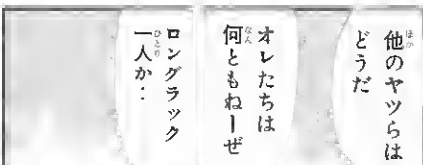 他のヤツらは
どうだ
オレたちは
何ともねーぜ
ロングラック
一人か‥